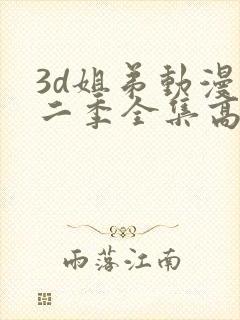 3d姐弟動漫
二季全集高
雨落江南